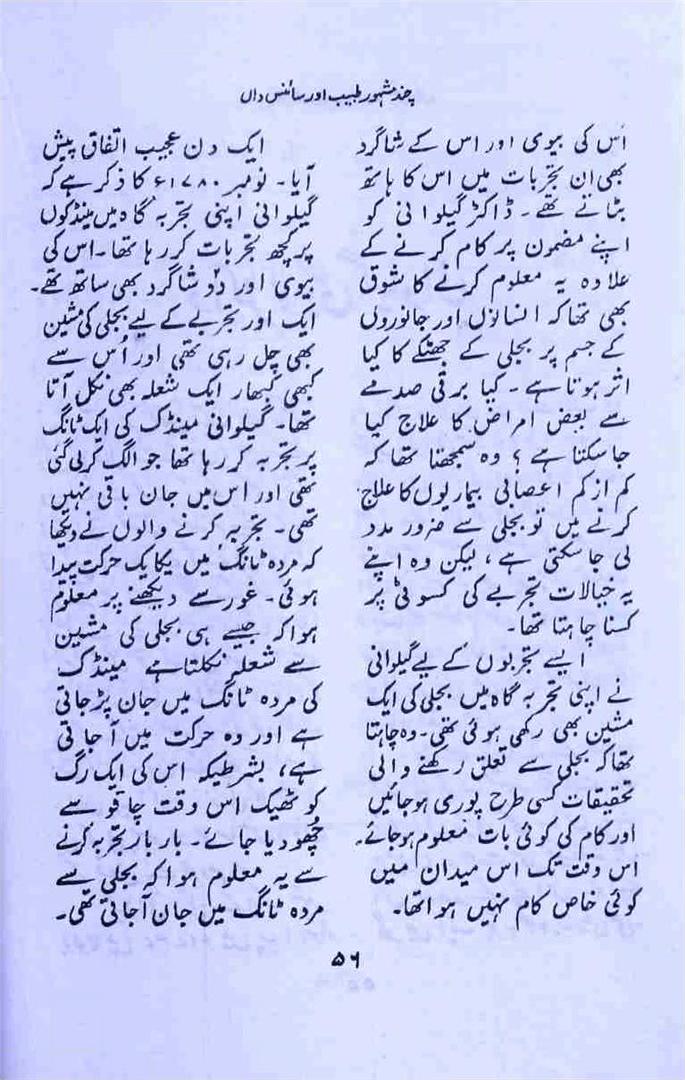 چند مشہور طبیب اور سائنس داں
اس کی بیوی اور اس کے شاگرد
بھی ان تجربات میں اس کا ہاتھ
بٹاتے تھے۔ ڈاکٹر گیلوانی کو
اپنے مضمون پر کام کرنے کے
علاوہ یہ معلوم کرنے کا شوق
بھی تھا کہ انسانوں اور جانوروں
کے جسم پر بجلی کے جھٹکے کا کیا
اثر ہوتا ہے۔ کیا برقی صدمے
سے بعض امراض کا علاج کیا
جا سکتا ہے؟ وہ سمجھتا تھا کہ
کم از کم اعصابی بیماریوں کا علاج
کرنے میں تو بجلی سے ضرور مدد
لی جا سکتی ہے، لیکن وہ اپنے
یہ خیالات تجربے کی کسوٹی پر
کسنا چاہتا تھا۔
ایسے تجربوں کے لیے گیلوانی
نے اپنی تجربہ گاہ میں بجلی کی ایک
مشین بھی رکھی ہوئی تھی۔ وہ چاہتا
تھا کہ بجلی سے تعلق رکھنے والی
تحقیقات کسی طرح پوری ہو جائیں
اور کام کی کوئی بات معلوم ہو جائے۔
اس وقت تک اس میدان میں
کوئی خاص کام نہیں ہوا تھا۔
ایک دن عجیب اتفاق پیش
آیا۔ نومبر ۱۷۸۰ء کا ذکر ہے کہ
گیلوانی اپنی تجربہ گاہ میں مینڈکوں
پر کچھ تجربات کر رہا تھا۔ اس کی
بیوی اور دو شاگرد بھی ساتھ تھے۔
ایک اور تجربے کے لیے بجلی کی مشین
بھی چل رہی تھی اور اُس سے
کبھی کبھار ایک شعلہ بھی نکل آتا
تھا۔ گیلوانی مینڈک کی ایک ٹانگ
پر تجربہ کر رہا تھا جو الگ کر لی گئی
تھی اور اس میں جان باقی نہیں
تھی۔ تجربہ کرنے والوں نے دیکھا
کہ مردہ ٹانگ میں یکایک حرکت پیدا
ہوئی۔ غور سے دیکھنے پر معلوم
ہوا کہ جیسے ہی بجلی کی مشین
سے شعلہ نکلتا ہے مینڈک
کی مردہ ٹانگ میں جان پڑ جاتی
ہے اور وہ حرکت میں آ جاتی
ہے، بشرطیکہ اس کی ایک رگ
کو ٹھیک اس وقت چاقو سے
چُھو دیا جائے۔ بار بار تجربہ کرنے
سے یہ معلوم ہوا کہ بجلی سے
مردہ ٹانگ میں جان آ جاتی تھی۔
۵۶